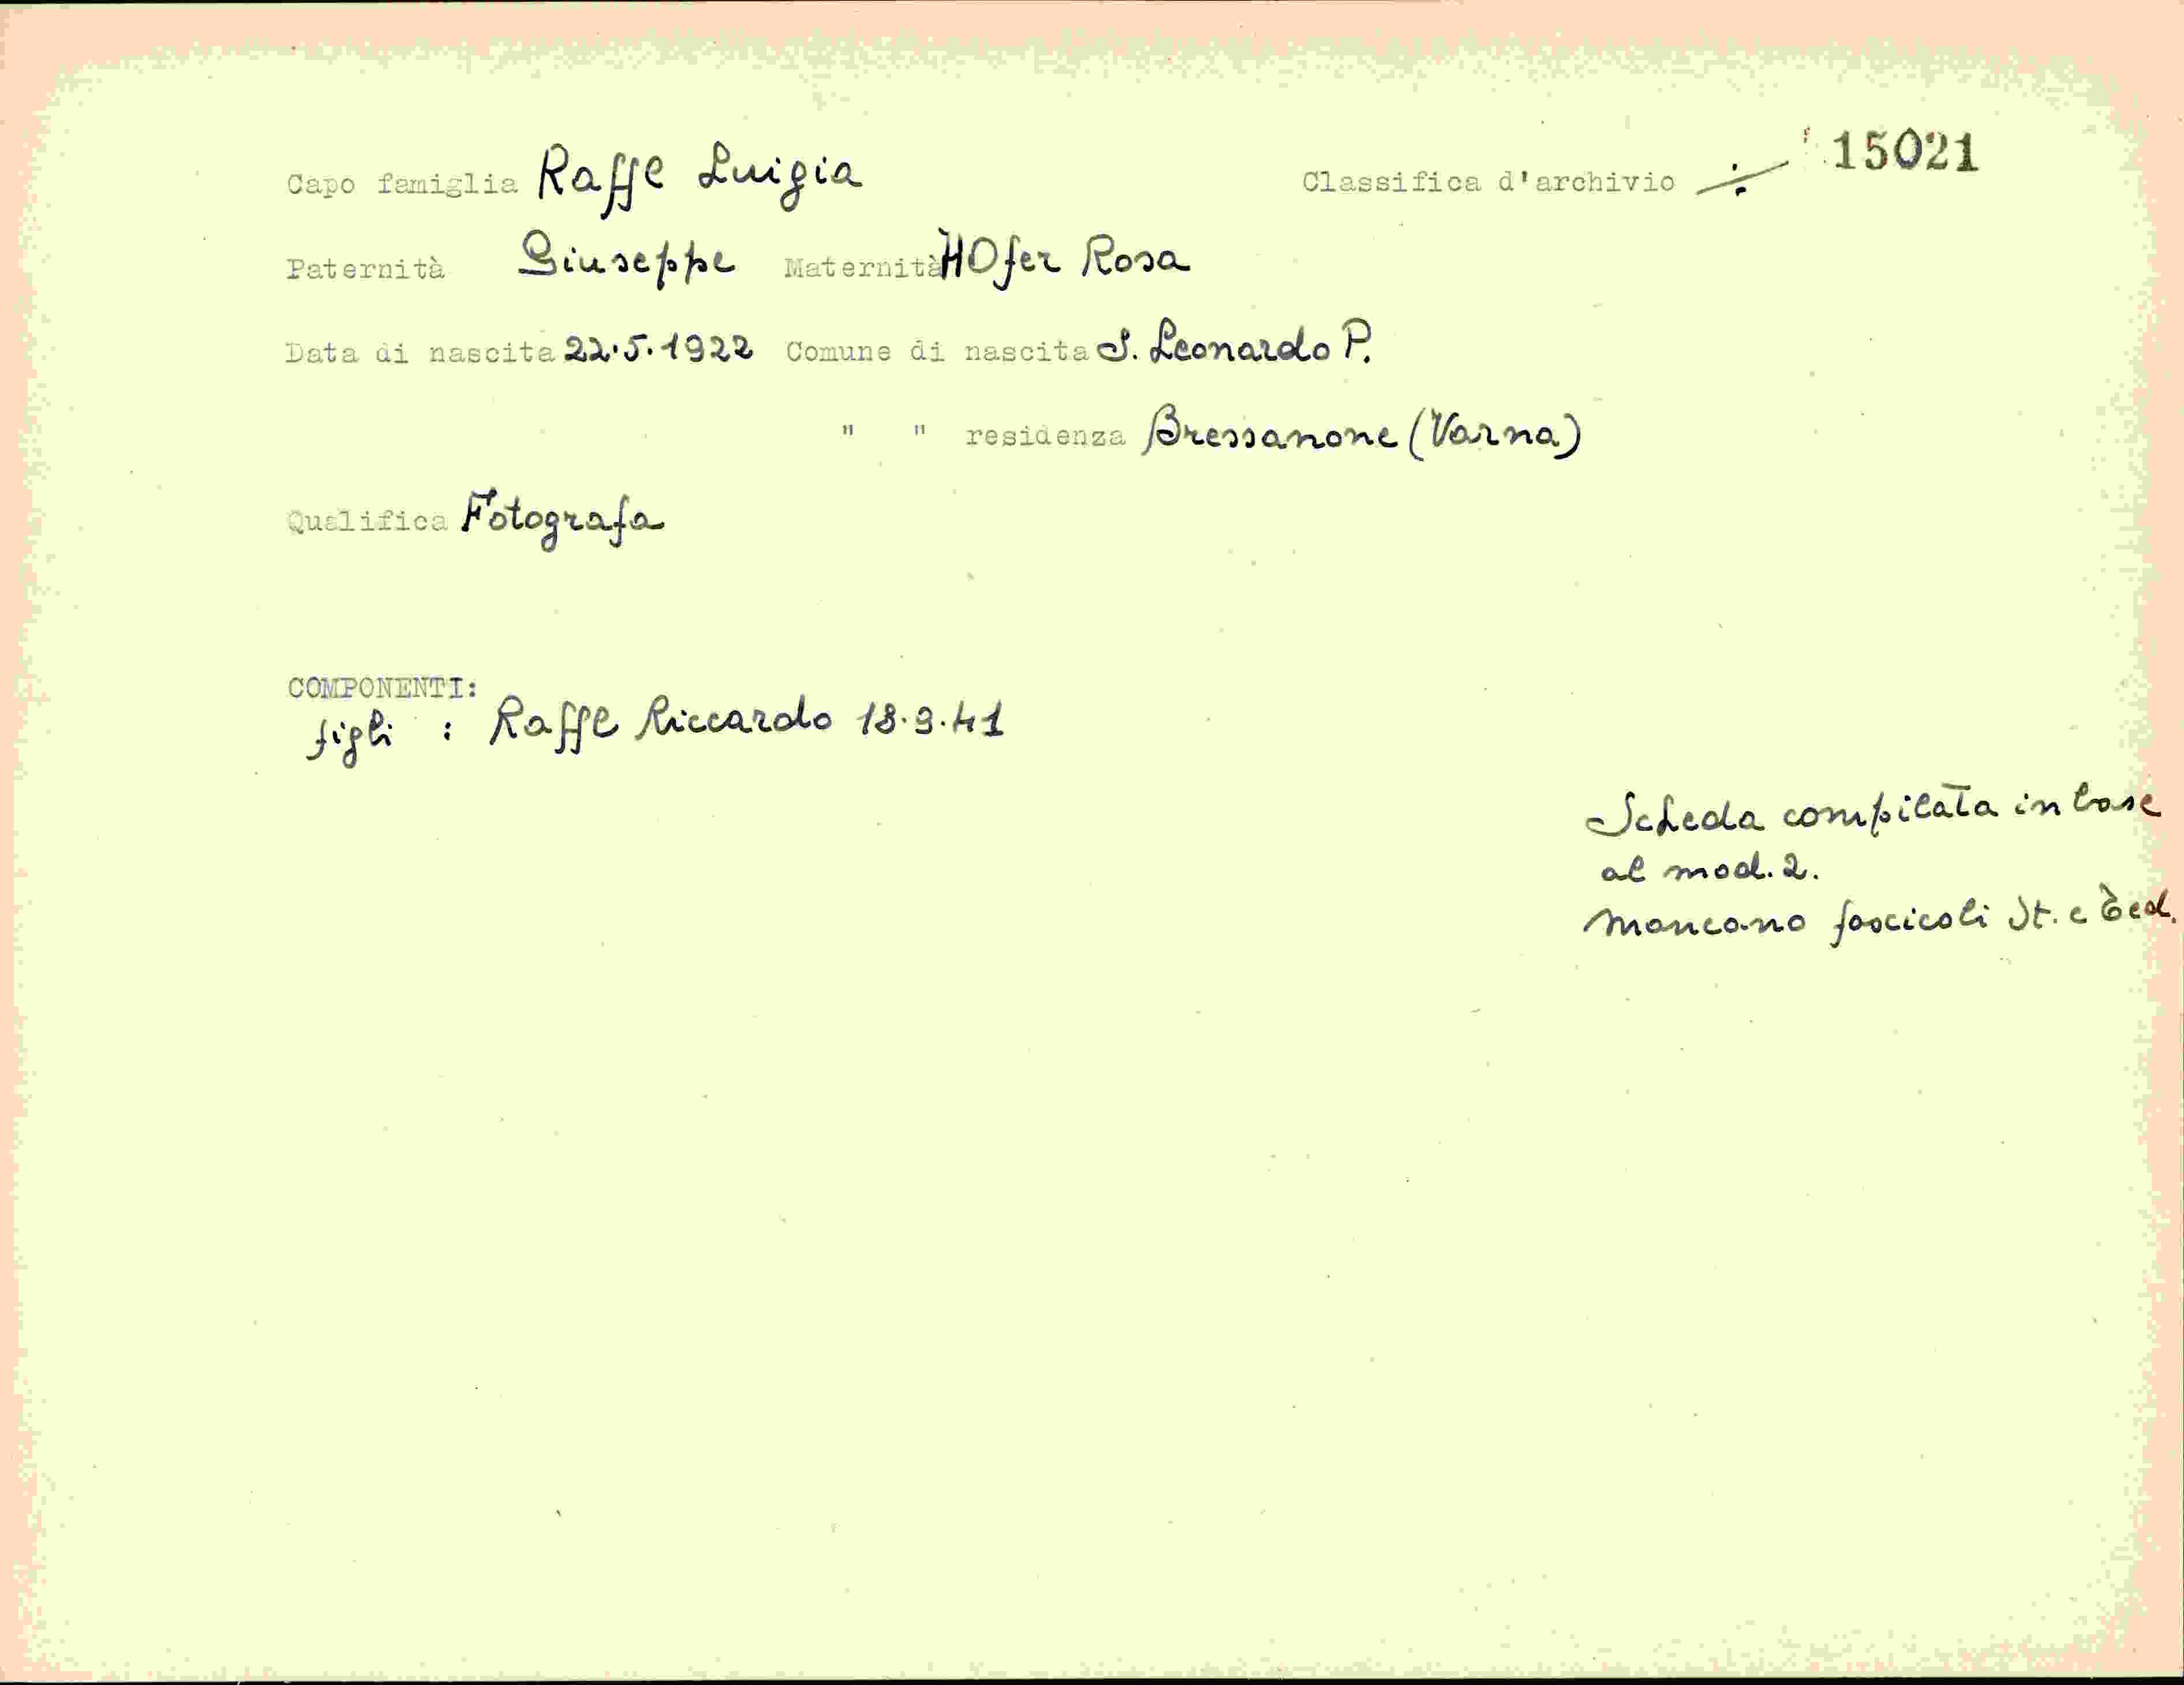 Capo famiglia Raffl Luigia Classifica d'archivio ÷ 15021
Paternità Giuseppe Maternità HOfer Rosa
Data di nascita 22.5.1922 Comune di nascita S. Leonardo P.
" " residenza Bressanone (Varna)
Qualifica Fotografa
COMPONENTI:
figli : Raffl Riccardo 18.9.41
Scheda compilata in base
al mod. 2.
Mancano fascicoli It. e Ted.